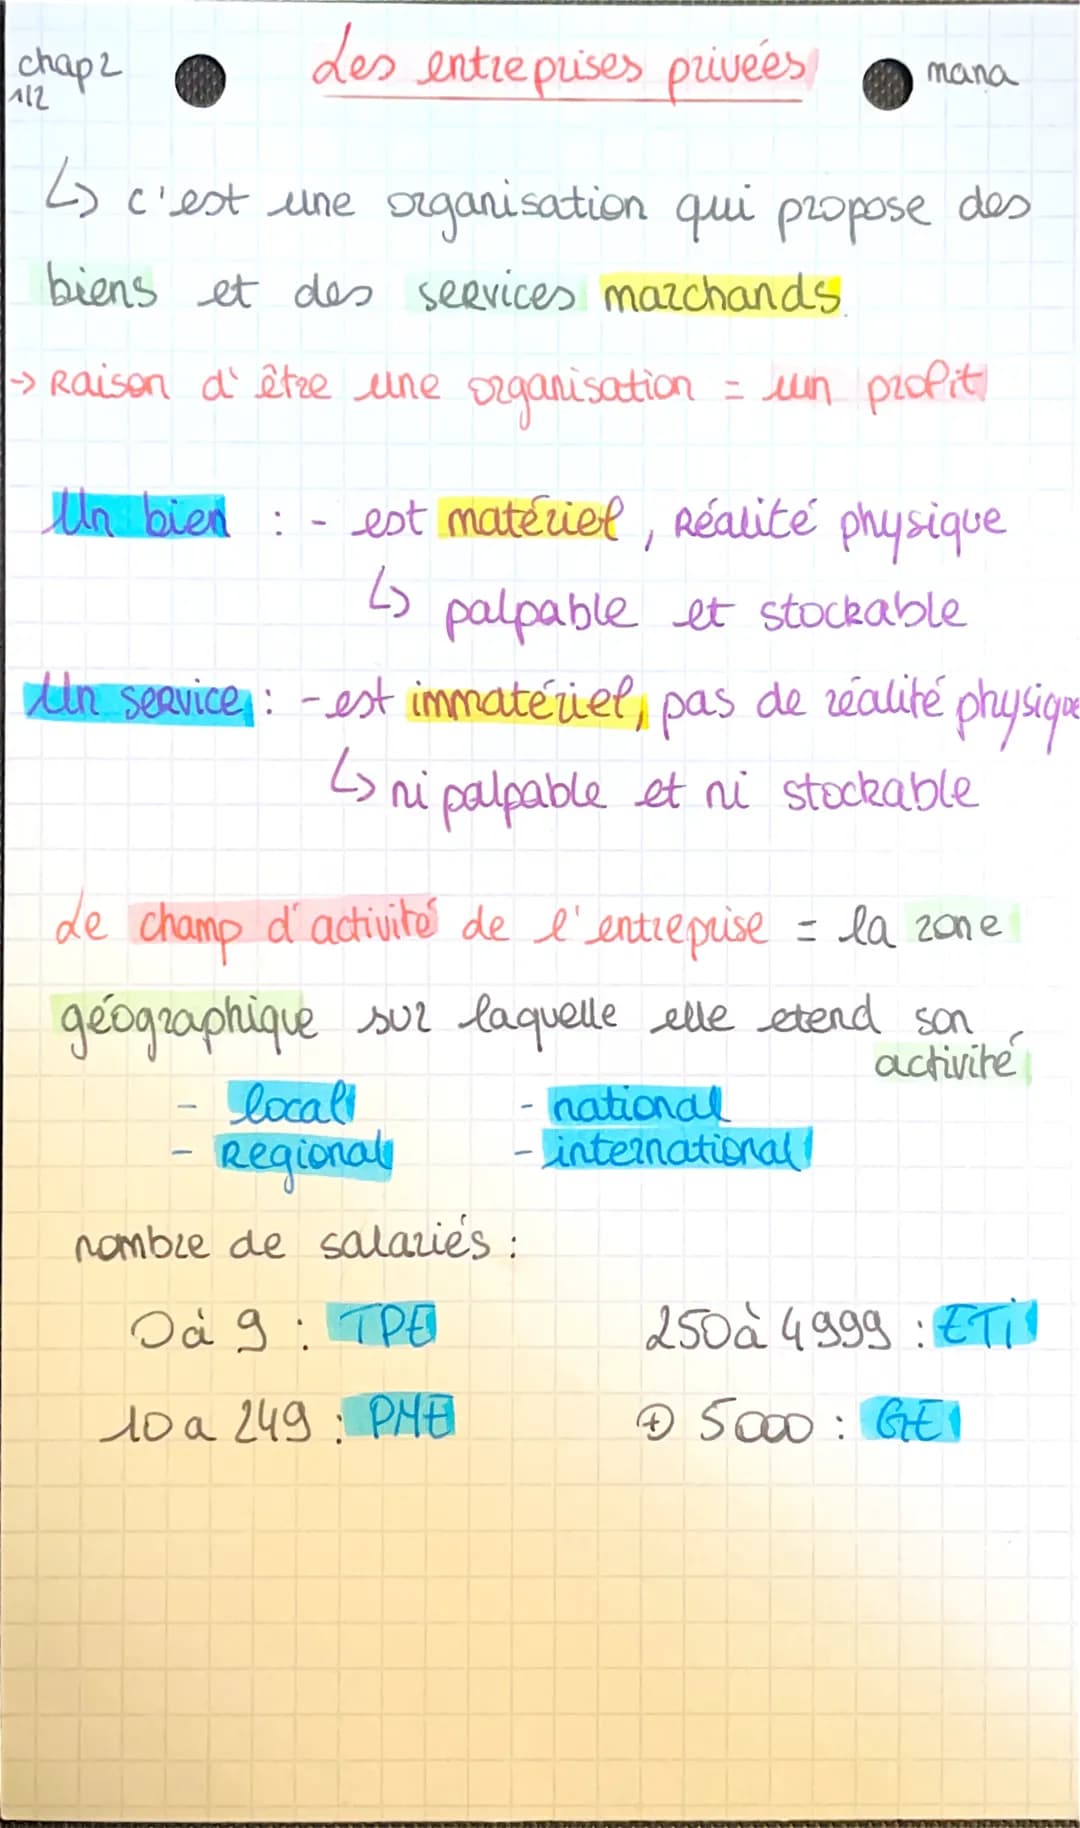 chap2
1/2
Les entreprises privées
mana
↳ c'est une organisation qui propose des
biens et des services marchands.
→ Raison d'être une organisation = un profit
Un bien : - est matériel, Réalité physique
↳ palpable et stockable
Un service : - est immatériel, pas de réalité physique
↳ ni palpable et ni stockable
Le champ d'activité de l'entreprise = la zone
géographique sur laquelle elle etend son
activité
- local - national
- Regional - international
nombre de salariés :
0 à 9 : TPE 250 à 4999 : ETI
10 a 249 : PME ⊕ 5000 : GE